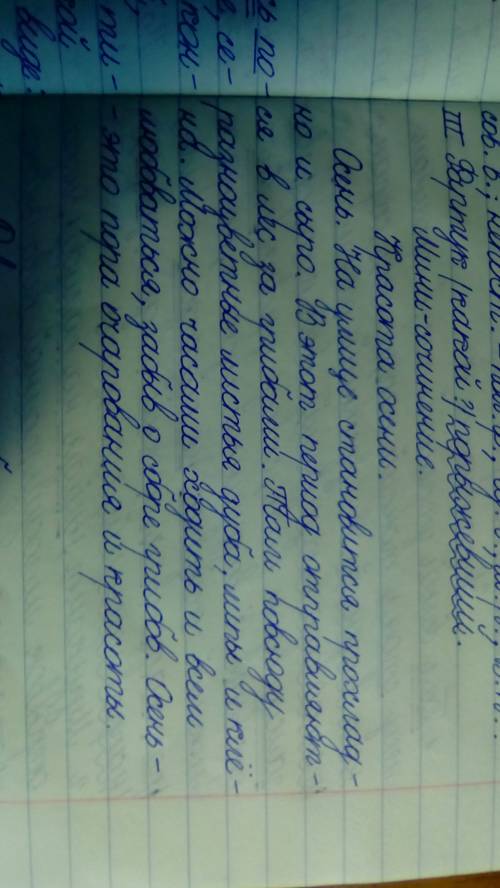 III Фартук (какой?) порыжевший.
Мини-сочинение.
Красота осени.
Осень. На улице становится прохлад-
но и сыро. В этот период отправляют-
ся в лес за грибами. Там повсюду
разноцветные листья дуба, липы и клё-
нв. Можно часами ходить и всем
любоваться, забыв о сборе грибов. Осень-
- это пора очарования и красоты.